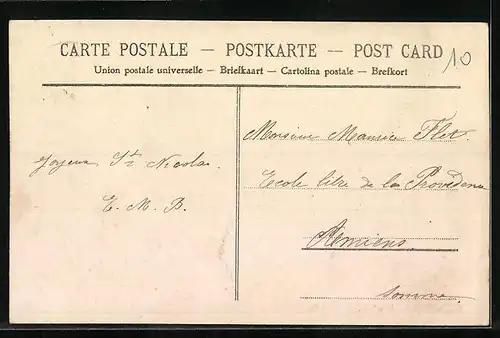 CARTE POSTALE — POSTKARTE — POST CARD
10
Union postale universelle — Briefkaart — Cartolina postale — Brefkort
Joyeux St Nicolas.
E. M. B.
Monsieur Maurice Flet.
Ecole libre de la Providence
Amiens
Somme.